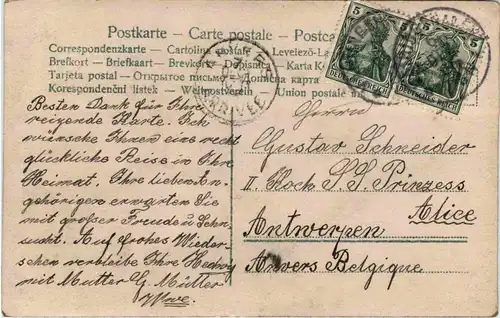 Postkarte – Carte postale – Postcard
Correspondenzkarte – Cartolina postale – Levelező-La
Brefkort – Briefkaart – Brevkort – Dopisnica – Karta Ko
Tarjeta postal – Открытое письмо – Дописна карта
Korespondenční lístek – Weltpostverein – Union postale
5
5
DEUTSCHES REICH
DEUTSCHES REICH
ARRIVÉE
Besten Dank für Ihre
reizende Karte. Ich
wünsche Ihnen eine recht
glückliche Reise in Ihre
Heimat. Ihre lieben An-
gehörigen erwarten Sie
mit großer Freude u Sehn-
sucht. Auf frohes Wieder-
sehen verbleibe Ihre Hedwig
mit Mutter G. Müller
Wwe.
Herrn
Gustav Schneider
II. Koch S.S. Prinzess
Alice
Antwerpen
Anvers Belgique